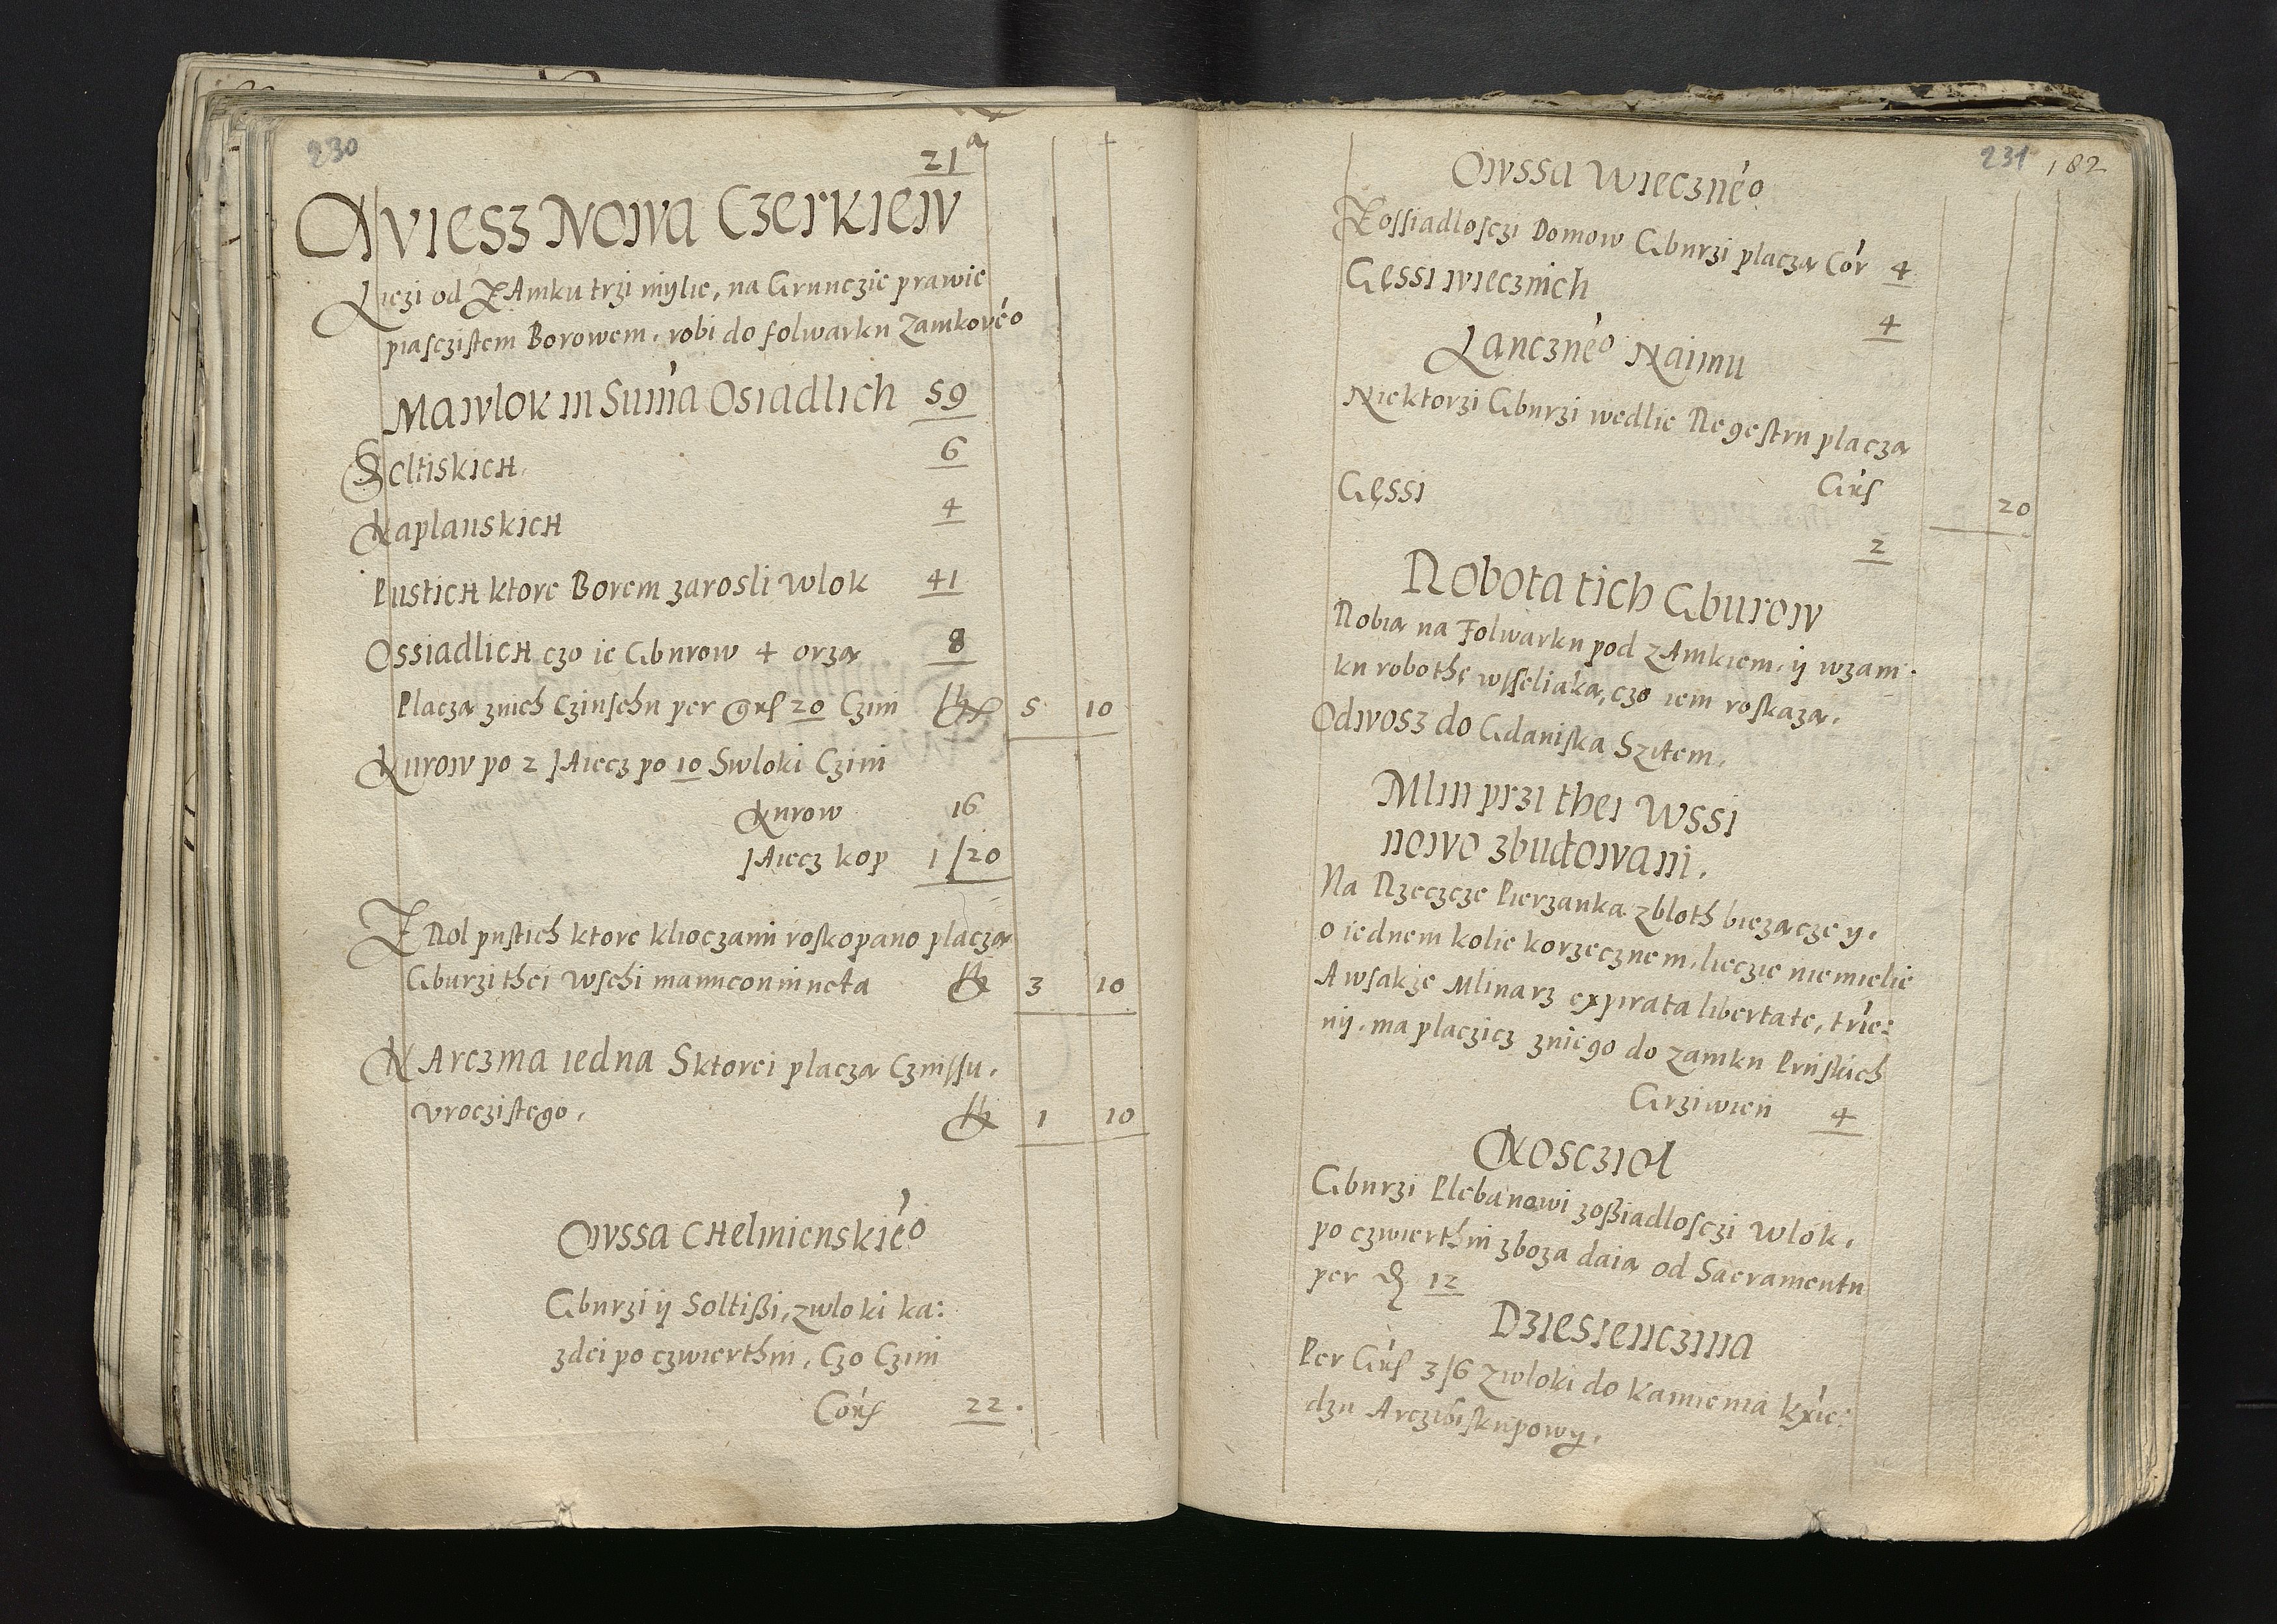 230
21a
Wiesz Nowa Czerkiew
Liezi od ZAmku trzi mylie, na Grunczie prawie
piasczistem Borowem, robi do folwarku Zamkoweo
Ma wlok in Suma Osiadlich 59
Soltiskich 6
Kaplanskich 4
Pustich ktore Borem zarosli wlok 41
Ossiadlich czo ie Gburow 4 orza 8
Placza znich Czinschu per grs 20 Czini 5 10
Kurow po 2 JAiecz po 10 Swloki Czini
Kurow 16
JAiecz kop 1/20
Z Rol pustich ktore kloczami roskopano placza
Gburzi thei wschi 3 10
KArczma iedna Sktorei placza Czinssu
vroczistego. 1 10
Owssa CHelmienskieo
Gburzi ij Soltißi, zwloki ka:
zdei po czwierthni, Czo Czini
Cors 22.
231 182
Owssa Wieczneo
Z ossiadlosczi Domow Gburzi placza Cor 4
Gęssi wiecznich 4
Lanczneo Naimu
Niektorzi Gburzi wedlie Regestru placza
Grs 20
Gęssi 2
Robota tich Gburow
Robia na Folwarku pod zAmkiem, ij wzam:
ku robothę wsseliaka, czo iem roskaza.
Odwosz do Gdaniska Szitem.
Mlin przi thei Wssi
nowo zbudowani.
Na Rzeczcze Pierzanka zbloth biezaczey,
o iednem kolie korzecznem, lieczie nie mielie
A wsakze Mlinarz expirata libertate, trie:
nij, ma placzicz zniego do zamku Pruskich
Grziwien 4
Kosczioł
Gburzi Plebanowi zoßiadlosczi Wlok,
po czwierthni zboza daia od Sacramentu
per 12
Dziesienczina
Per Grs 3/6 Zwloki do Kamienia kxie:
dzu Arczibiskupowy.